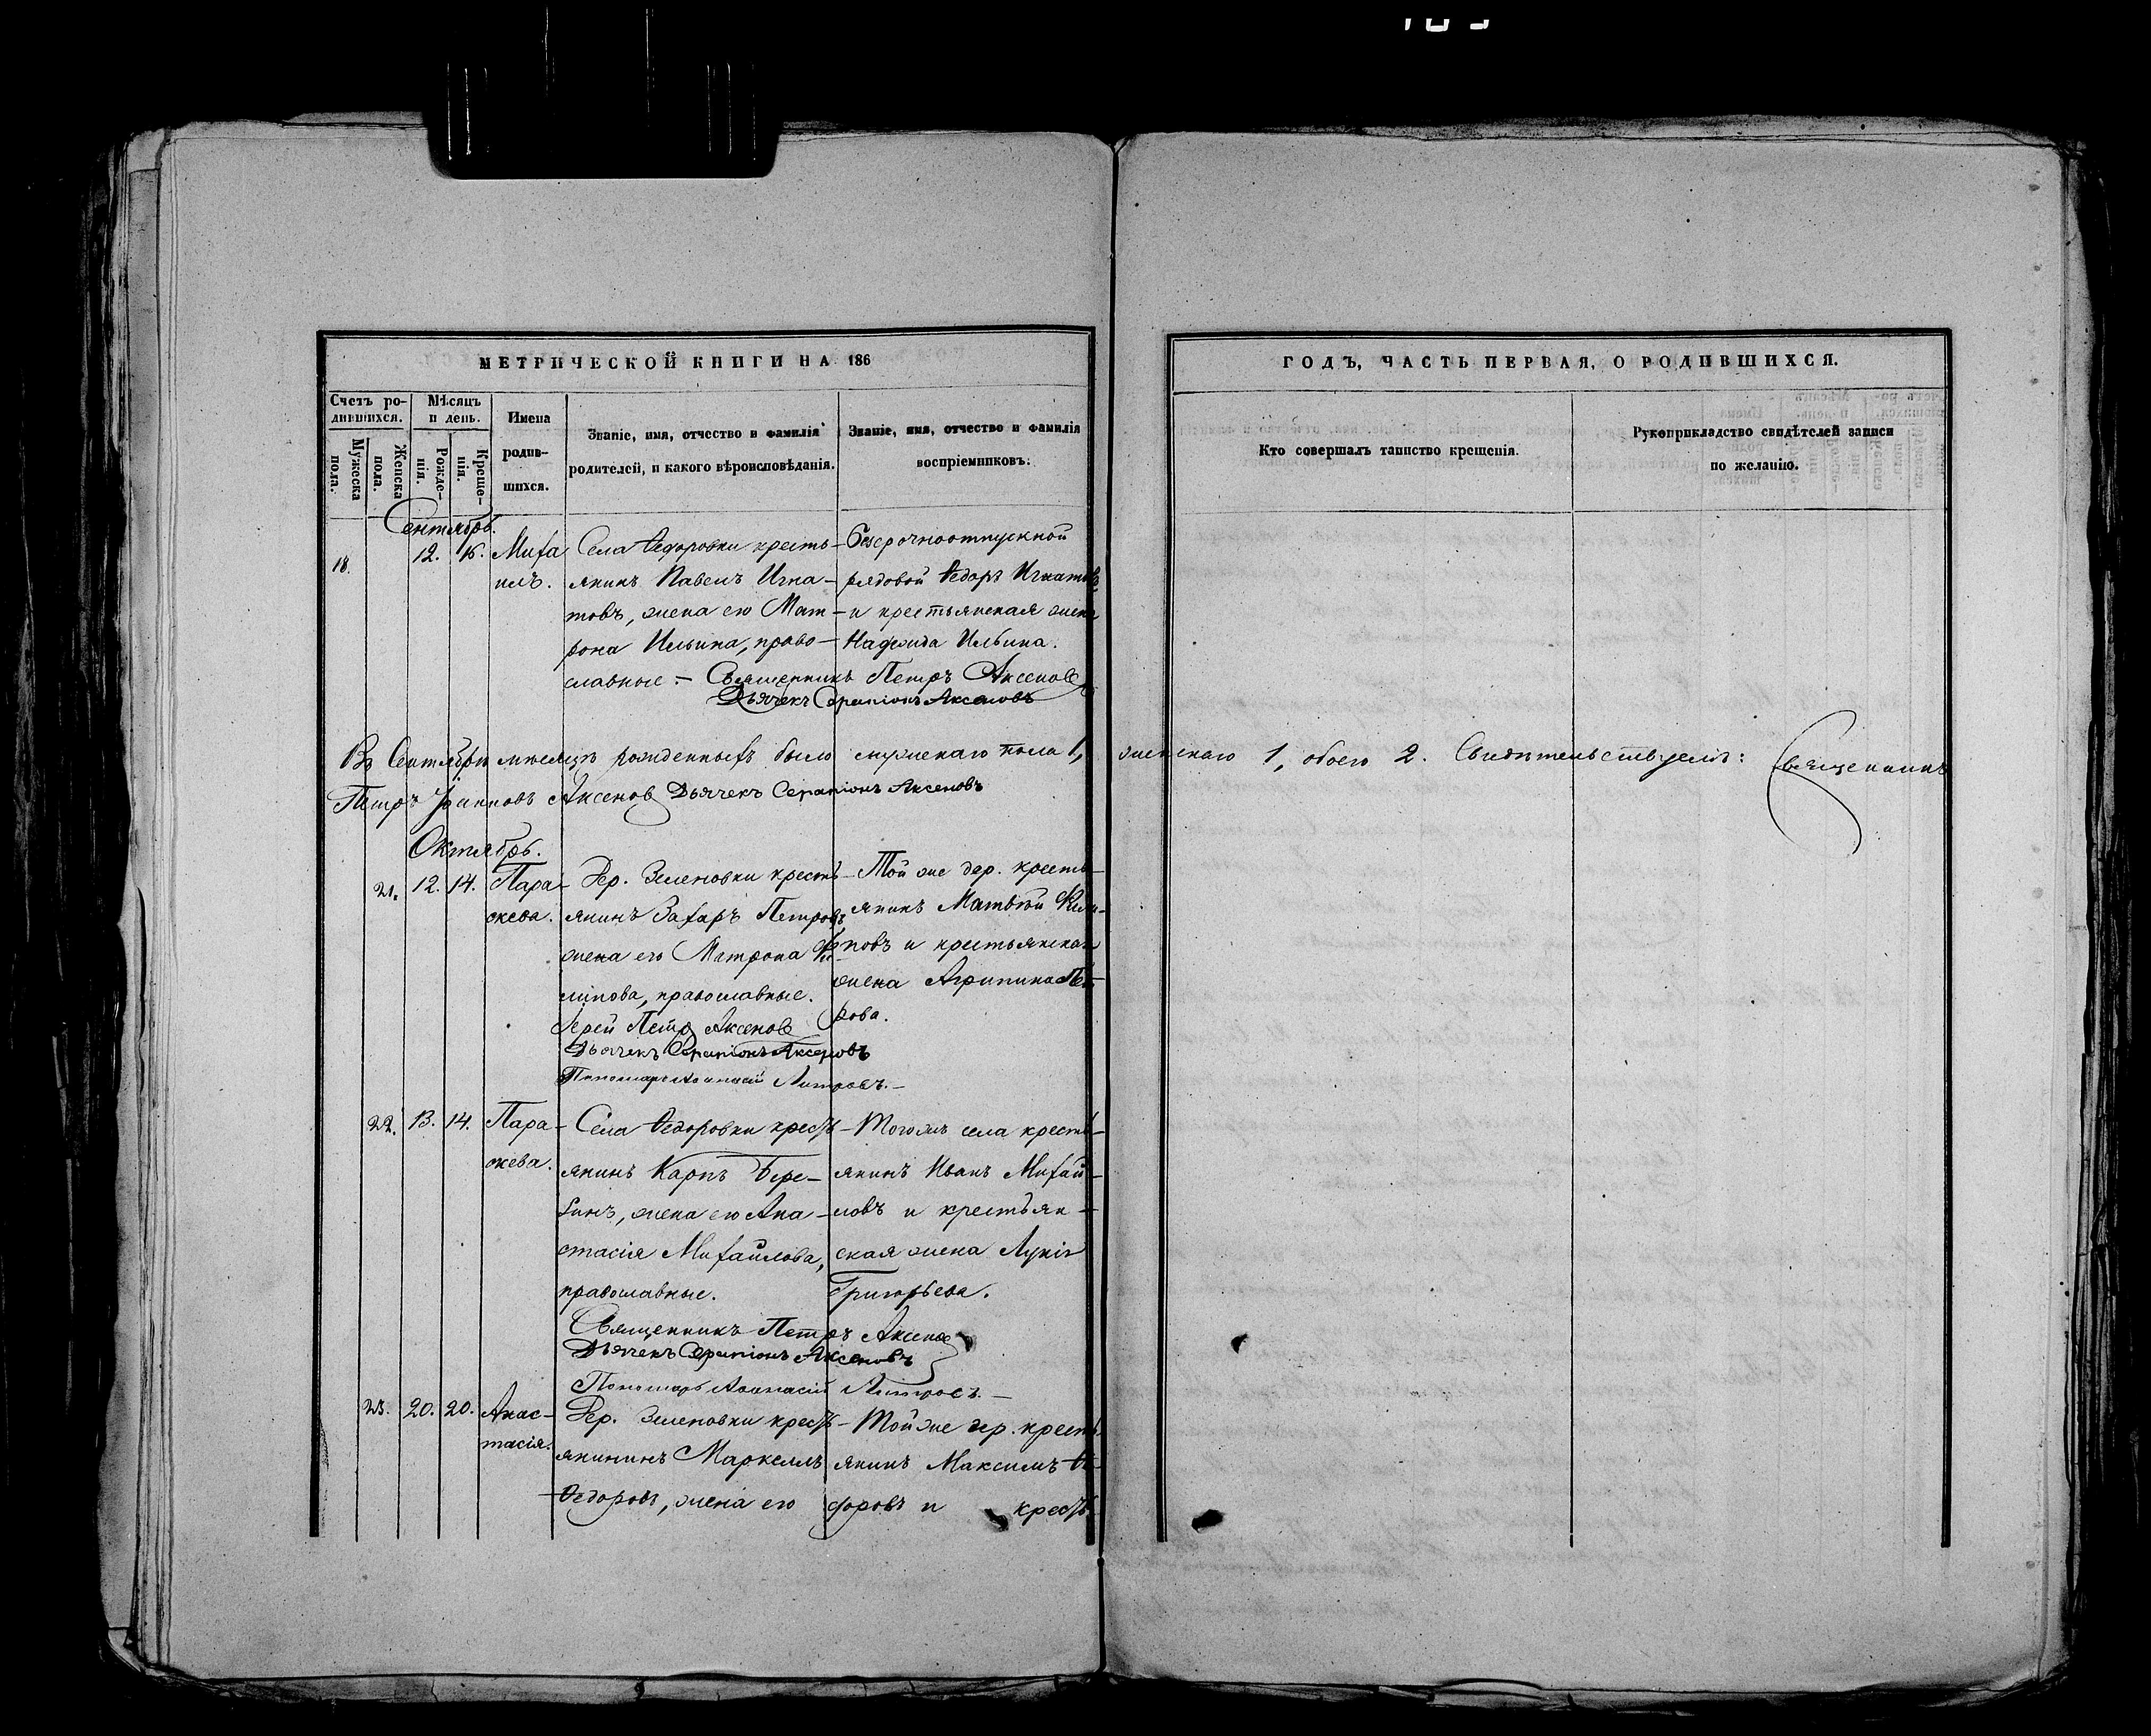 МЕТРИЧЕСКОЙ КНИГИ НА 186
ГОДЪ, ЧАСТЬ ПЕРВАЯ, О РОДИВШИХСЯ.
Счетъ ро-
дившихся.
Мѣсяцъ
и день.
Мужеска
пола.
Женска
пола.
Рожде-
нія.
Креще-
нія.
Имена
родив-
шихся.
Званіе, имя, отчество и фамилія
родителей, и какого вѣроисповѣданія.
Званіе, имя, отчество и фамилія
воспріемниковъ.
Кто совершалъ таинство крещенія.
Рукоприкладство свидѣтелей записи
по желанію.
Сентябрь.
18. 12. 15. Миха
илъ.
Села Ѳедоровки кресть-
янинъ Павелъ Игна-
товъ, жена его Мат-
рона Ильина, право-
славные.
Безсрочноотпускной
рядовой Ѳедоръ Игнатовъ
и крестьянская жена
Надежда Ильина.
Священникъ Петръ Аксеновъ
Дьячекъ Серапіонъ Аксеновъ
Въ Сентябрѣ мѣсяцѣ рожденныхъ было мужескаго пола 1, женскаго 1, обоего 2. Свидѣтельствуемъ: Священникъ
Петръ Аксенов Дьячекъ Серапіонъ Аксеновъ
Октябрь.
21. 12. 14. Пара-
скева.
Дер. Зеленовки кресть-
янинъ Захаръ Петровъ,
жена его Матрона Фи-
липова, православные.
Той же дер. кресть-
янинъ Матвѣй
повъ и крестьянская
жена Агрипина Пет-
рова.
Іерей Петр Аксенов
Дьячекъ Серапіонъ Аксеновъ
Пономарь Аѳанасій
22. 13. 14. Пара-
скева.
Села Ѳедоровки кресть-
янинъ Карпъ Бере-
зинъ, жена его Ана-
стасія Михайлова,
православные.
Того же села кресть-
янинъ Иванъ Михай-
ловъ и крестьян-
ская жена
Григорьева.
Священникъ Петръ Аксенов
Дьячекъ Серапіонъ Аксеновъ
Пономарь Аѳанасій
23. 20. 20. Анас-
тасія.
Дер. Зеленовки кресть-
янинъ Маркеллъ
Ѳедоровъ, жена его
Той же дер. кресть-
янинъ Максимъ Ѳе-
доровъ и кресть-